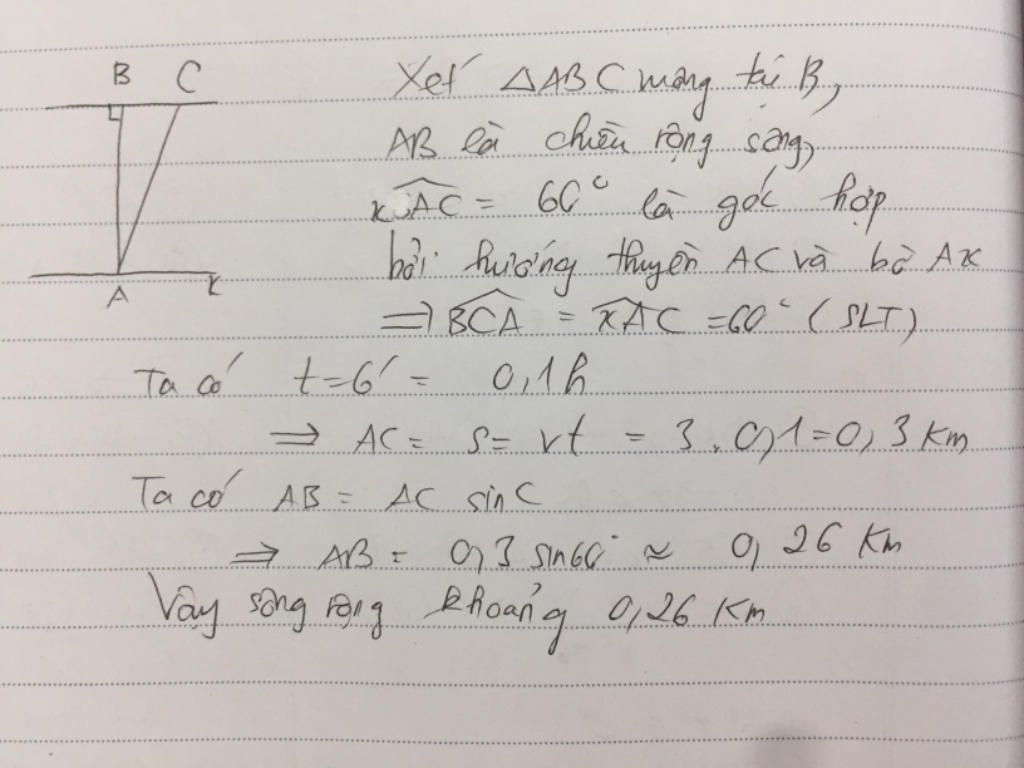 B C
A x
Xét △ABC vuông tại B,
AB là chiều rộng sông,
xAC = 60° là góc hợp
bởi hướng thuyền AC và bờ Ax
⇒ BCA = xAC = 60° (SLT)
Ta có t = 6' = 0,1h
⇒ AC = S = vt = 3 . 0,1 = 0,3 Km
Ta có AB = AC sinC
⇒ AB = 0,3 sin60° ≈ 0,26 Km
Vậy sông rộng khoảng 0,26 Km